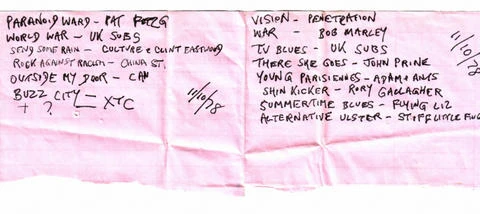 PARANOID WARD - PAT
WORLD WAR - UK SUBS
SEND SOME RAIN - CULTURE & CLINT EASTWOOD
ROCK AGAINST RACISM - CHINA ST.
OUTSIDE MY DOOR - CAN
BUZZ CITY - XTC
+ ?
11/10/78
VISION - PENETRATION
WAR - BOB MARLEY
TV BLUES - UK SUBS
THERE SHE GOES - JOHN PRINE
YOUNG PARISIENNES - ADAM & ANTS
SHIN KICKER - RORY GALLAGHER
SUMMERTIME BLUES - FLYING LIZ
ALTERNATIVE ULSTER - STIFF LITTLE FING
11/10/78